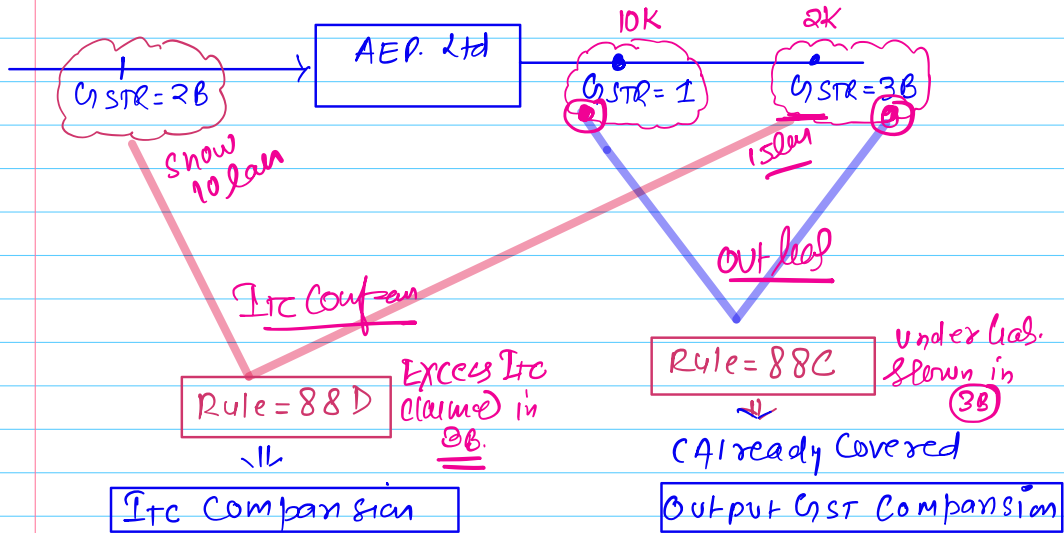 10K
2K
AEP. Ltd
GSTR=2B
GSTR=1
GSTR=3B
Show
10 lan
15lan
Out liab
ITC Compan
Rule=88D
Excess ITC
Claimed in
3B.
Rule=88C
Under liab.
Shown in
3B
(Already Covered
ITC Comparision
OUTPUT GST Comparsion